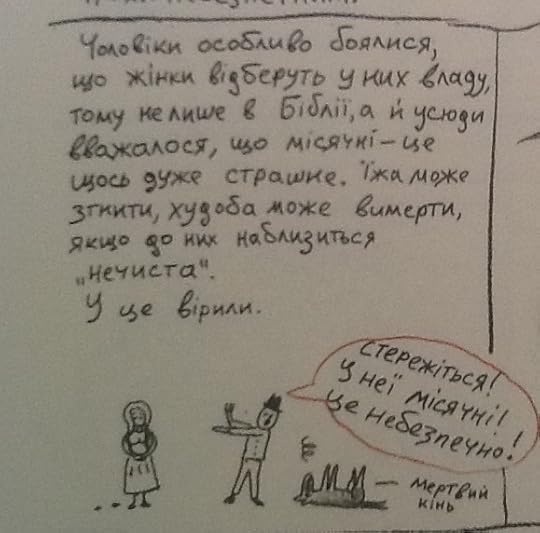 Чоловіки особливо боялися,
що жінки відберуть у них владу,
тому не лише в Біблії, а й усюди
вважалося, що місячні – це
щось дуже страшне. Їжа може
згнити, худоба може вимерти,
якщо до них наблизиться
„нечиста".
У це вірили.
Стережіться!
У неї місячні!
Це небезпечно!
– мертвий
кінь